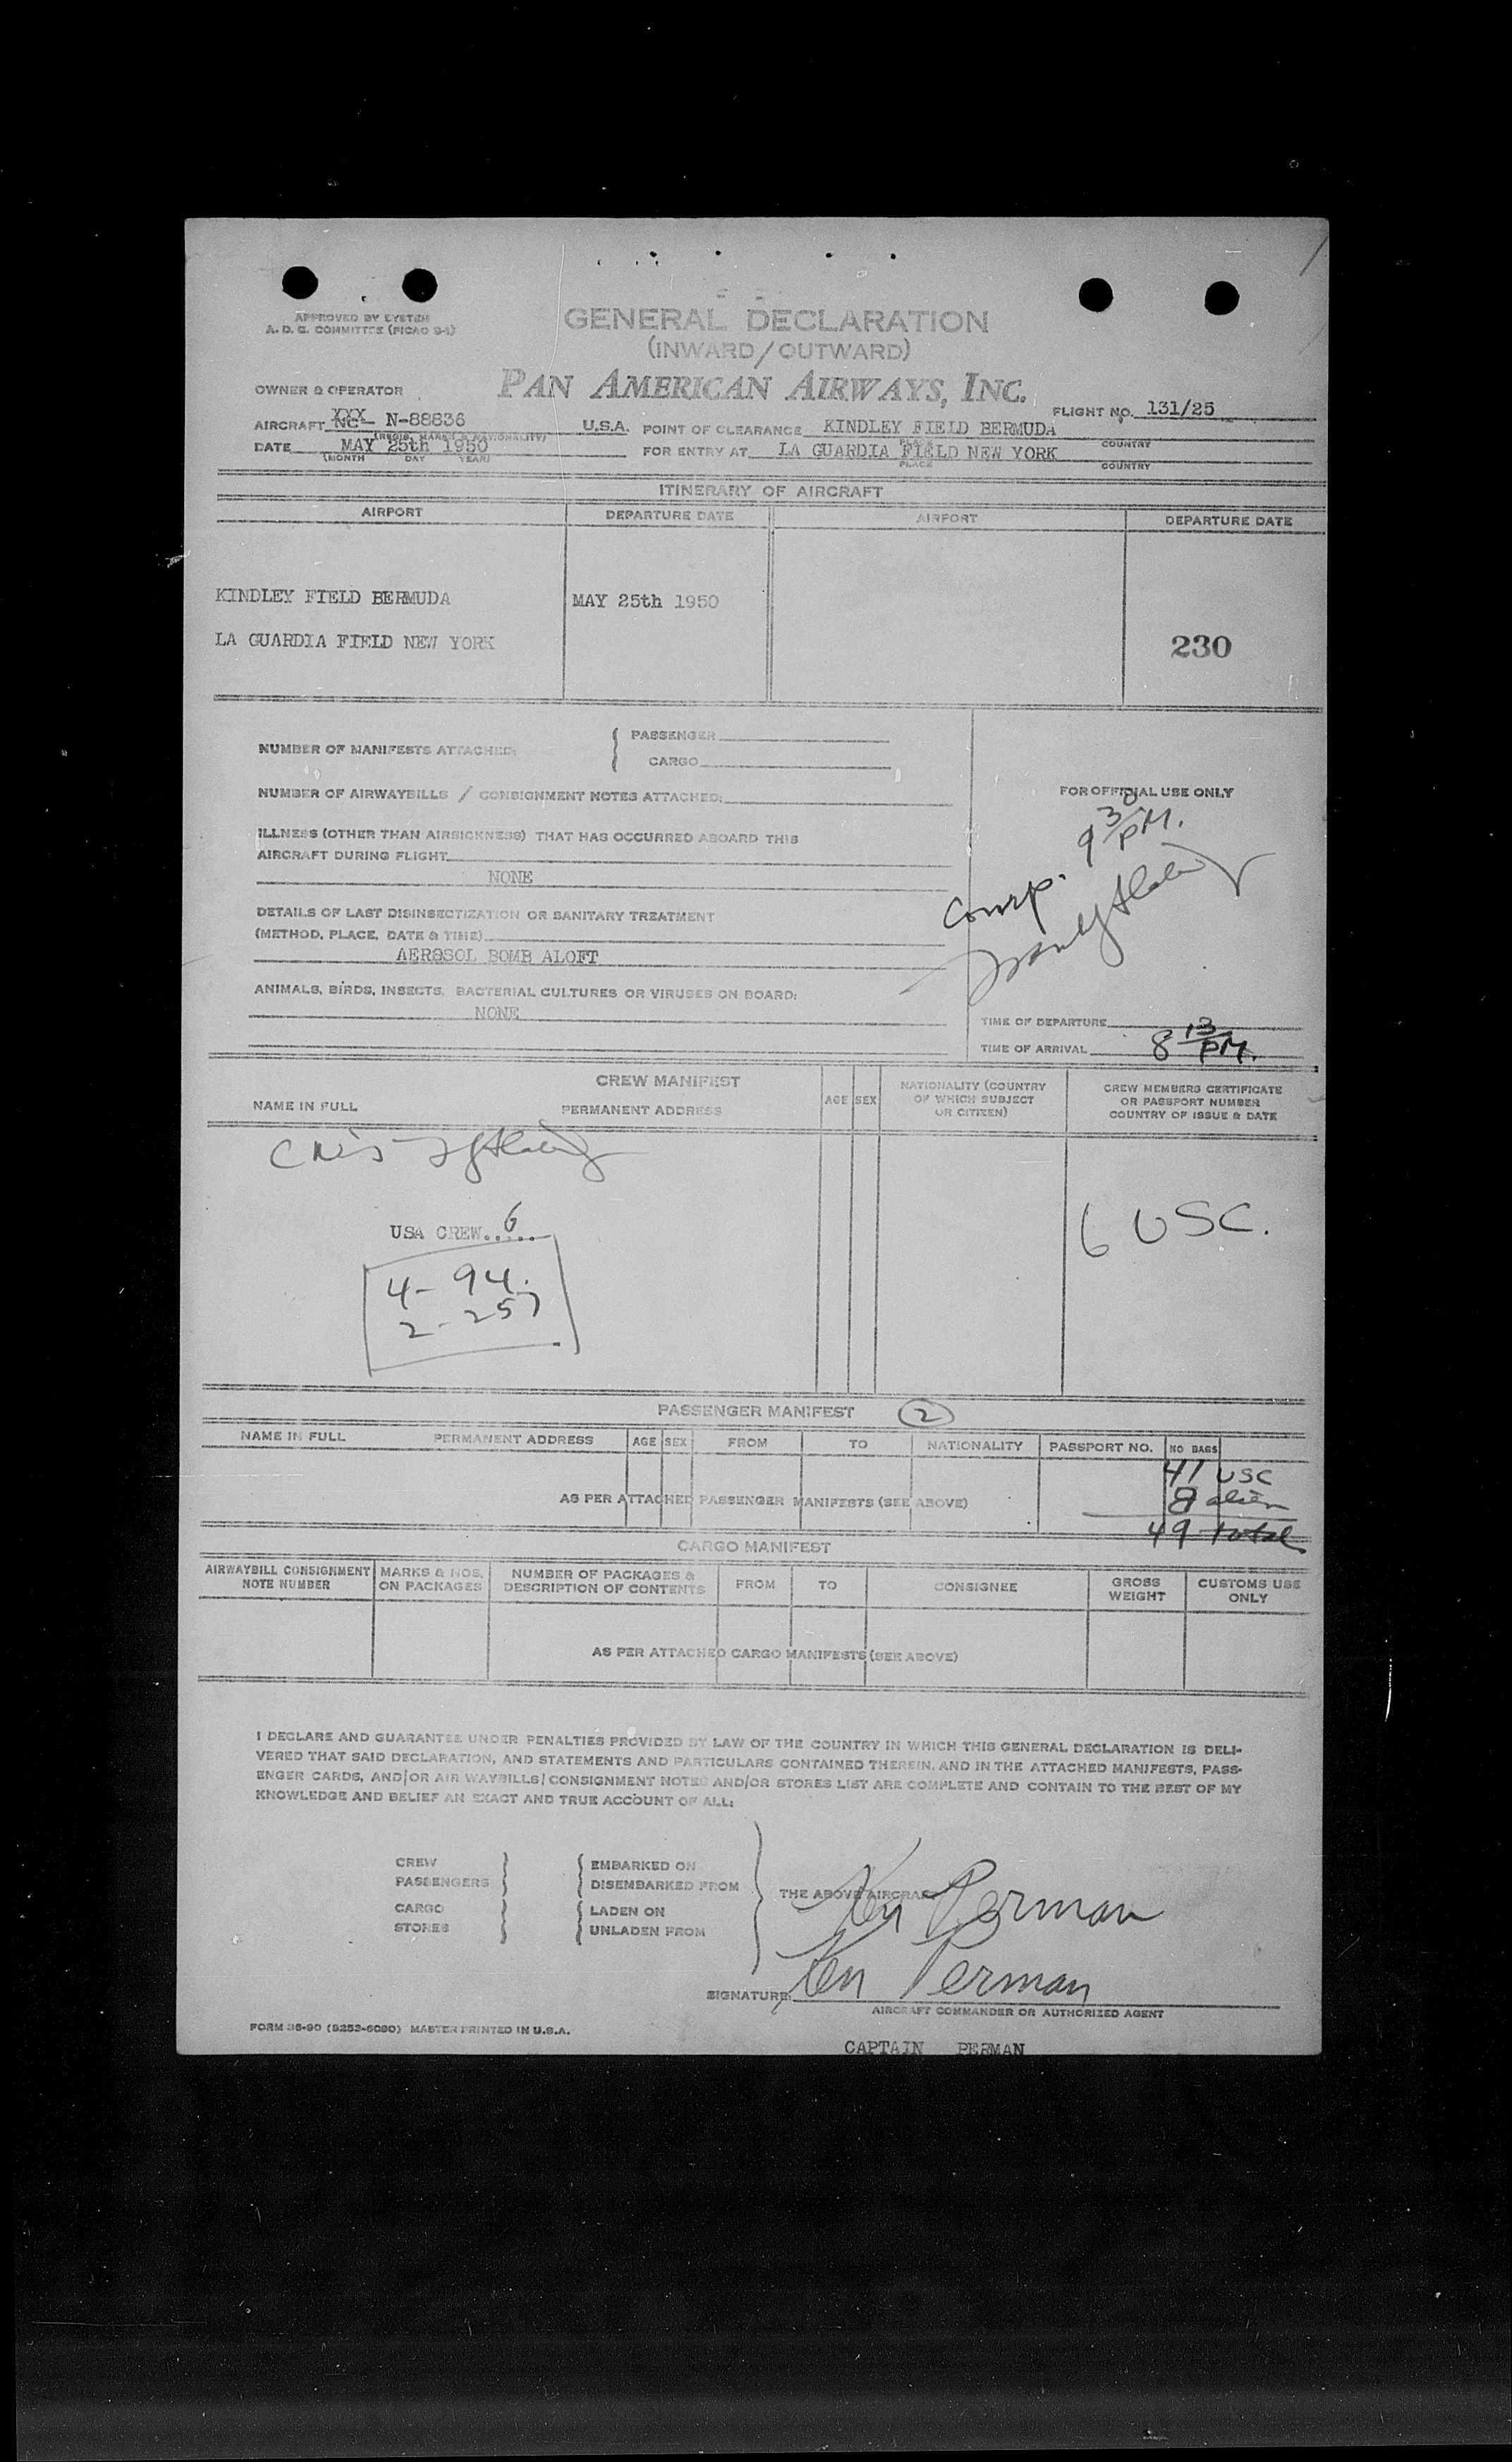 APPROVED BY
A. D. C. COMMITTEE (PICAO S-1)
GENERAL DECLARATION
(INWARD/OUTWARD)
OWNER & OPERATOR
PAN AMERICAN AIRWAYS, INC.
FLIGHT NO. 131/25
AIRCRAFT NC- XXX N-88836 U.S.A. POINT OF CLEARANCE KINDLEY FIELD BERMUDA
(REGIS. MARKS & NATIONALITY) PLACE COUNTRY
DATE MAY 25th 1950 FOR ENTRY AT LA GUARDIA FIELD NEW YORK
(MONTH DAY YEAR) PLACE COUNTRY
ITINERARY OF AIRCRAFT
AIRPORT DEPARTURE DATE AIRPORT DEPARTURE DATE
KINDLEY FIELD BERMUDA MAY 25th 1950
LA GUARDIA FIELD NEW YORK 230
NUMBER OF MANIFESTS ATTACHED: { PASSENGER
CARGO
NUMBER OF AIRWAYBILLS / CONSIGNMENT NOTES ATTACHED:
FOR OFFICIAL USE ONLY
9 30 PM.
Comp.
ILLNESS (OTHER THAN AIRSICKNESS) THAT HAS OCCURRED ABOARD THIS
AIRCRAFT DURING FLIGHT
NONE
DETAILS OF LAST DISINSECTIZATION OR SANITARY TREATMENT
(METHOD, PLACE, DATE & TIME)
AEROSOL BOMB ALOFT
ANIMALS, BIRDS, INSECTS, BACTERIAL CULTURES OR VIRUSES ON BOARD:
NONE
TIME OF DEPARTURE
TIME OF ARRIVAL 8 13 PM.
CREW MANIFEST
NAME IN FULL PERMANENT ADDRESS AGE SEX NATIONALITY (COUNTRY OF WHICH SUBJECT OR CITIZEN) CREW MEMBERS CERTIFICATE OR PASSPORT NUMBER COUNTRY OF ISSUE & DATE
USA CREW..6...
6 USC.
4- 94.
2-257
PASSENGER MANIFEST 2
NAME IN FULL PERMANENT ADDRESS AGE SEX FROM TO NATIONALITY PASSPORT NO. NO BAGS
41 USC
AS PER ATTACHED PASSENGER MANIFESTS (SEE ABOVE) 8 alien
49 total
CARGO MANIFEST
AIRWAYBILL CONSIGNMENT NOTE NUMBER MARKS & NOS. ON PACKAGES NUMBER OF PACKAGES & DESCRIPTION OF CONTENTS FROM TO CONSIGNEE GROSS WEIGHT CUSTOMS USE ONLY
AS PER ATTACHED CARGO MANIFESTS (SEE ABOVE)
I DECLARE AND GUARANTEE UNDER PENALTIES PROVIDED BY LAW OF THE COUNTRY IN WHICH THIS GENERAL DECLARATION IS DELI-
VERED THAT SAID DECLARATION, AND STATEMENTS AND PARTICULARS CONTAINED THEREIN, AND IN THE ATTACHED MANIFESTS, PASS-
ENGER CARDS, AND/OR AIR WAYBILLS/CONSIGNMENT NOTES AND/OR STORES LIST ARE COMPLETE AND CONTAIN TO THE BEST OF MY
KNOWLEDGE AND BELIEF AN EXACT AND TRUE ACCOUNT OF ALL:
CREW EMBARKED ON
PASSENGERS DISEMBARKED FROM
CARGO LADEN ON
STORES UNLADEN FROM
THE ABOVE AIRCRAFT
Ken Perman
SIGNATURE: Ken Perman
AIRCRAFT COMMANDER OR AUTHORIZED AGENT
FORM 36-90 (5253-6090) MASTER PRINTED IN U.S.A.
CAPTAIN PERMAN